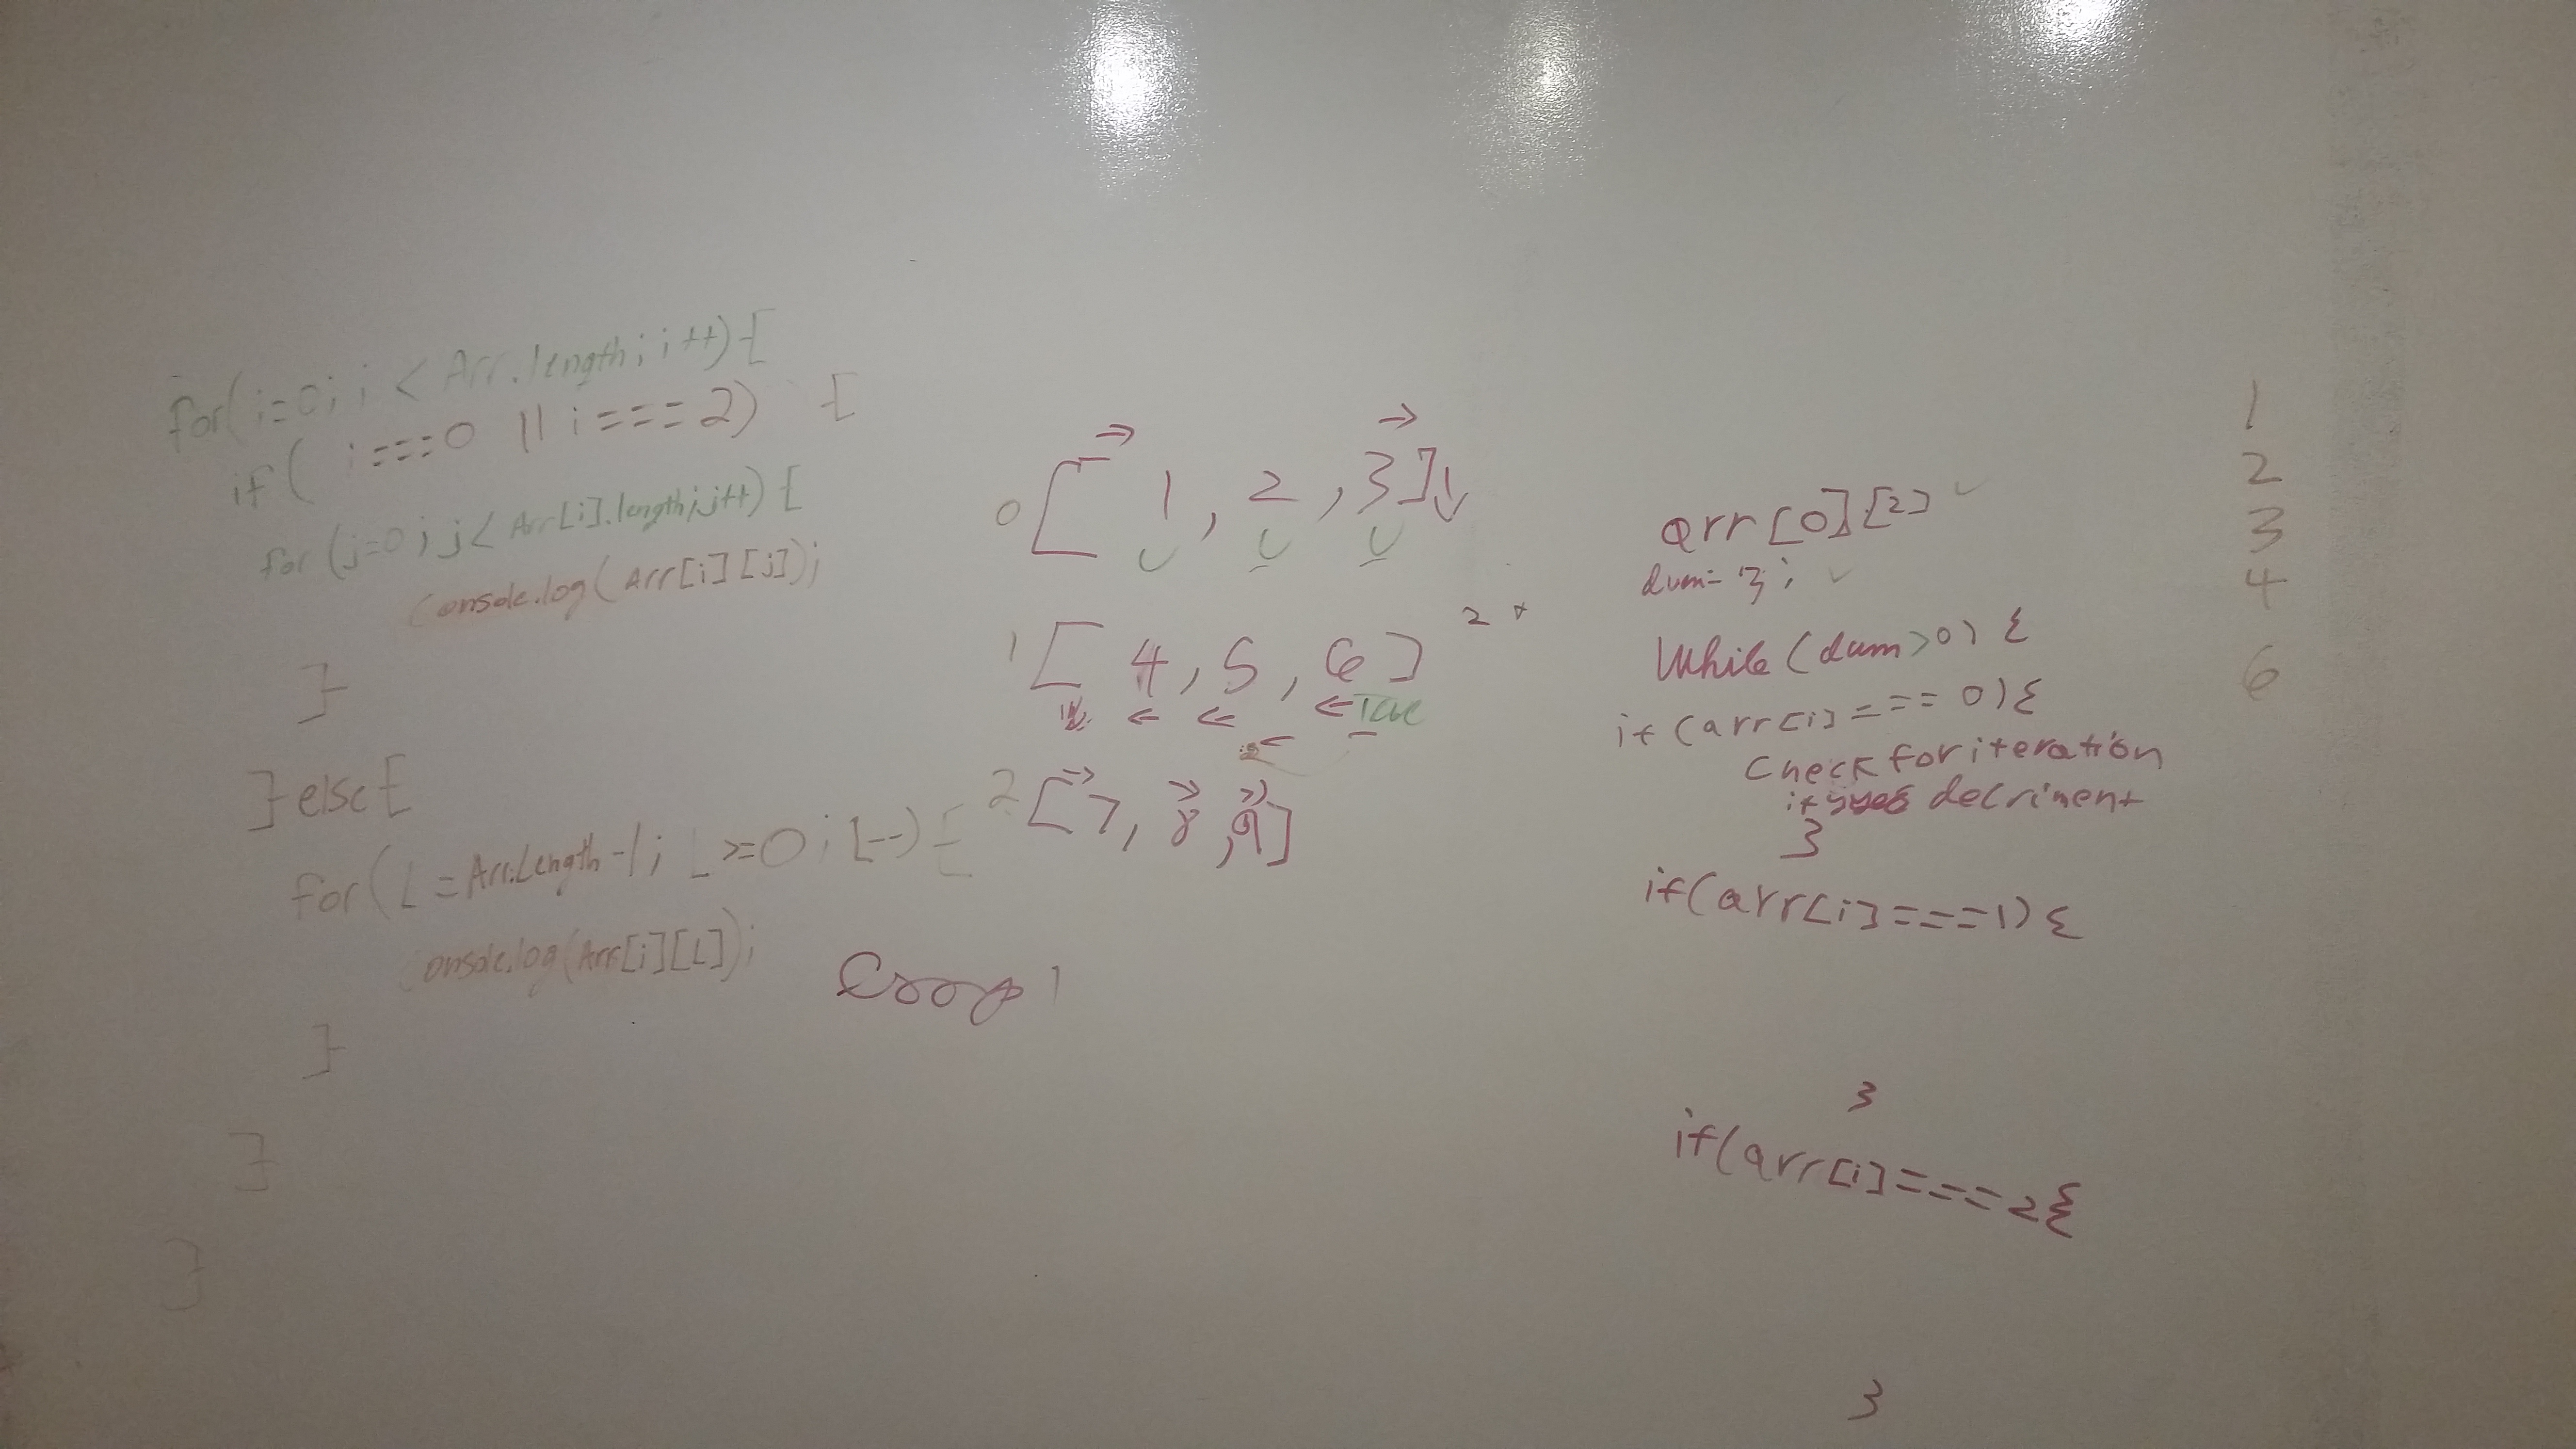 for(i=0; i < Arr.length; i++){
if( i===0 || i===2) {
for (j=0; j< Arr[i].length; j++) {
console.log(Arr[i][j]);
}
} else {
for(L = Arr.Length-1; L>=0; L--) {
console.log(Arr[i][L]);
}
}
}
→ →
0 [ 1, 2, 3] ↓
2
1 [ 4, 5, 6 ]
← ← ←
←
→ → →
2 [7, 8, 9]
arr[0][2] ✓
dum= 3; ✓
While (dum>0) {
if (arr[i] === 0) {
Check for iteration
if yes decriment
}
if(arr[i]===1) {
}
if(arr[i]===2{
}
1
2
3
4
6